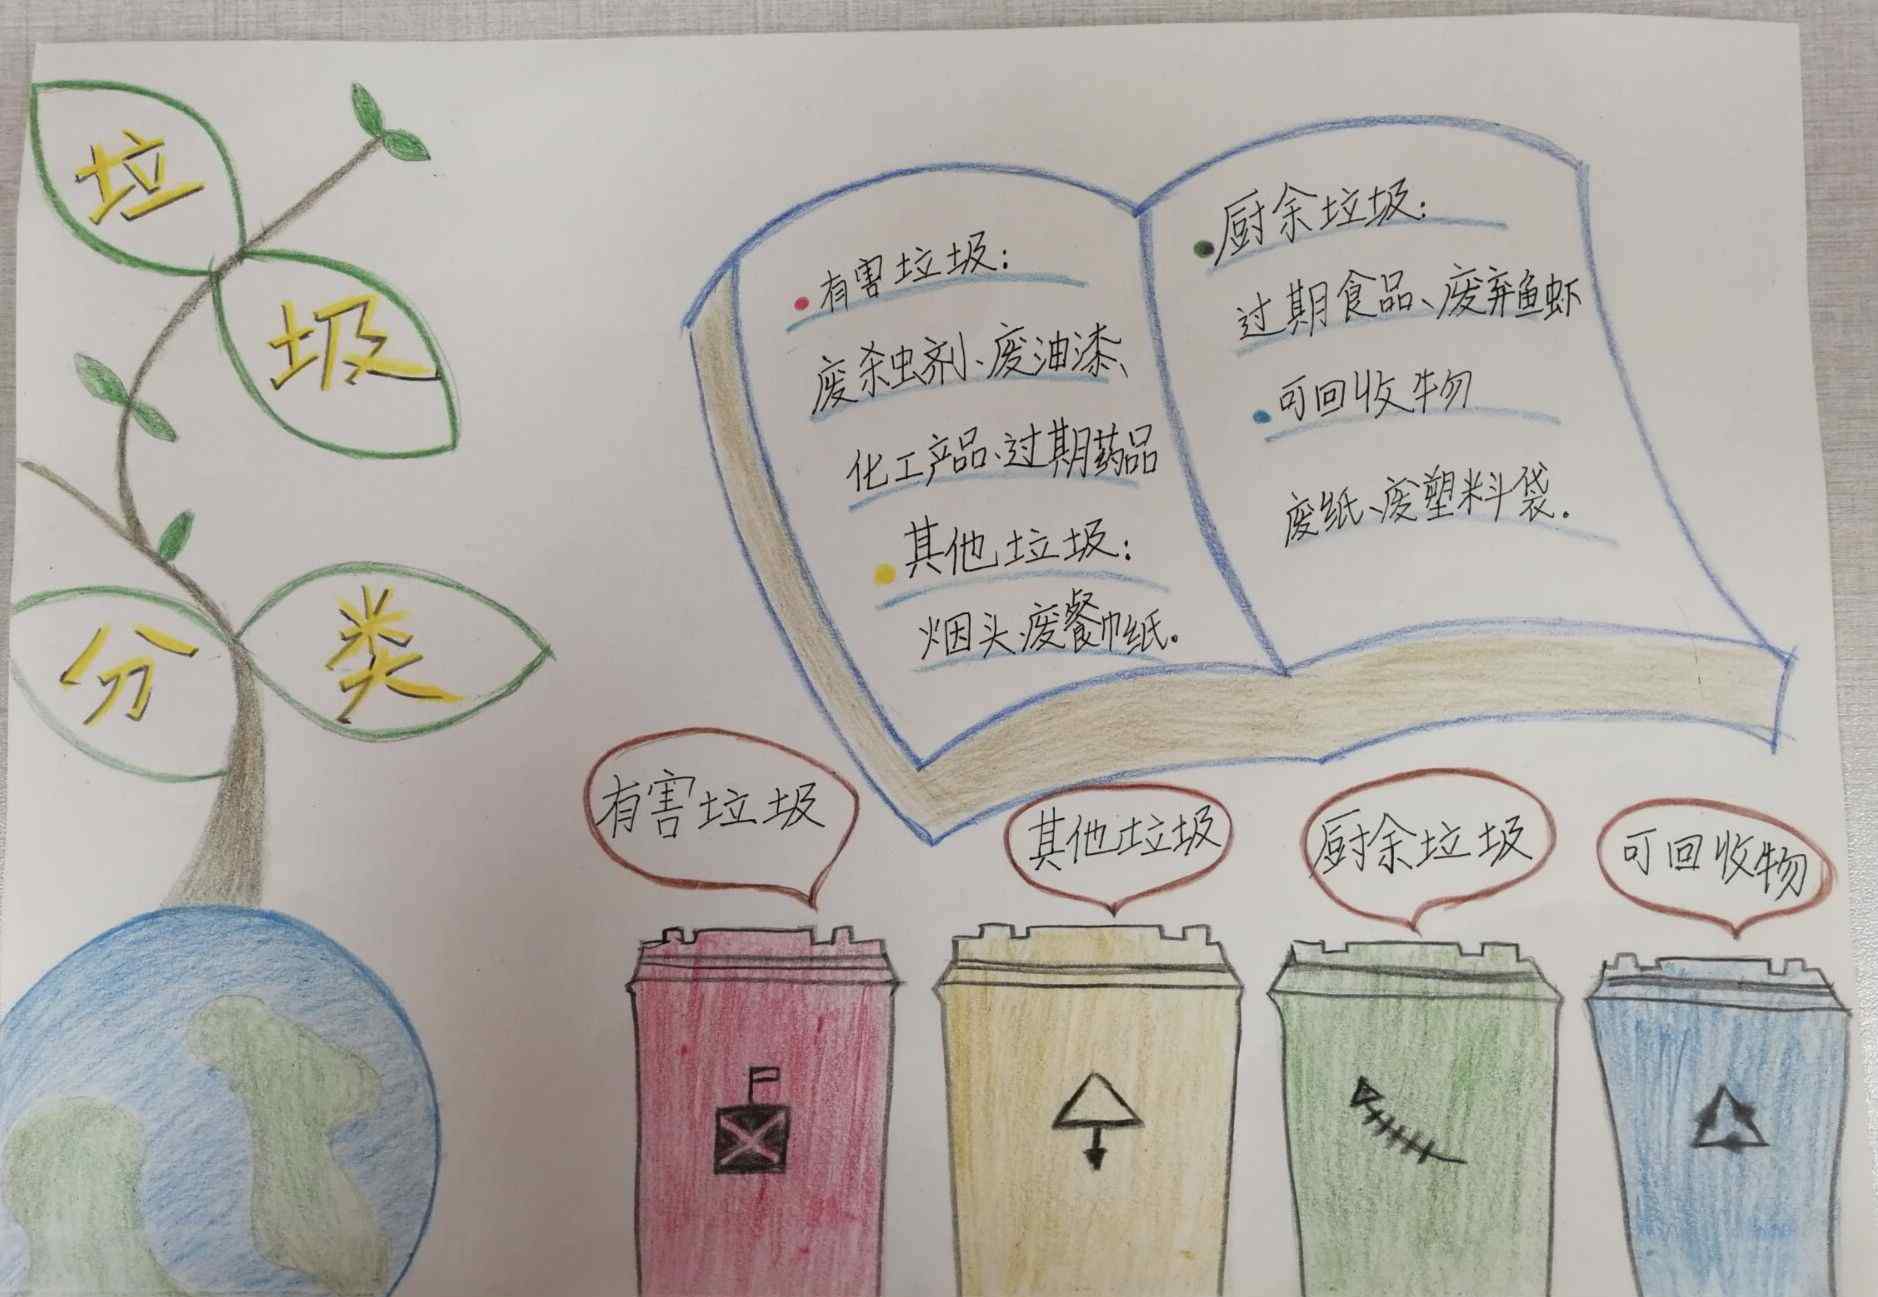 垃
圾
分
类
有害垃圾：
废杀虫剂、废油漆、
化工产品、过期药品
其他垃圾：
烟头、废餐巾纸。
厨余垃圾：
过期食品、废弃鱼虾
可回收物
废纸、废塑料袋．
有害垃圾
其他垃圾
厨余垃圾
可回收物